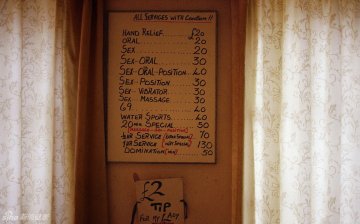 ALL SERVICES WITH Condom!!
HAND RELIEF. £20
ORAL 20
SEX 20
SEX-ORAL 30
SEX-ORAL-POSITION 40
SEX-POSITION 30
SEX-VIBRATOR 30
SEX-MASSAGE 30
69. 40
WATER SPORTS. 40
20min SPECIAL 50
½HR SERVICE 70
1HR SERVICE 130
DOMINATION 50
£2
TIP
FOR MY LADY